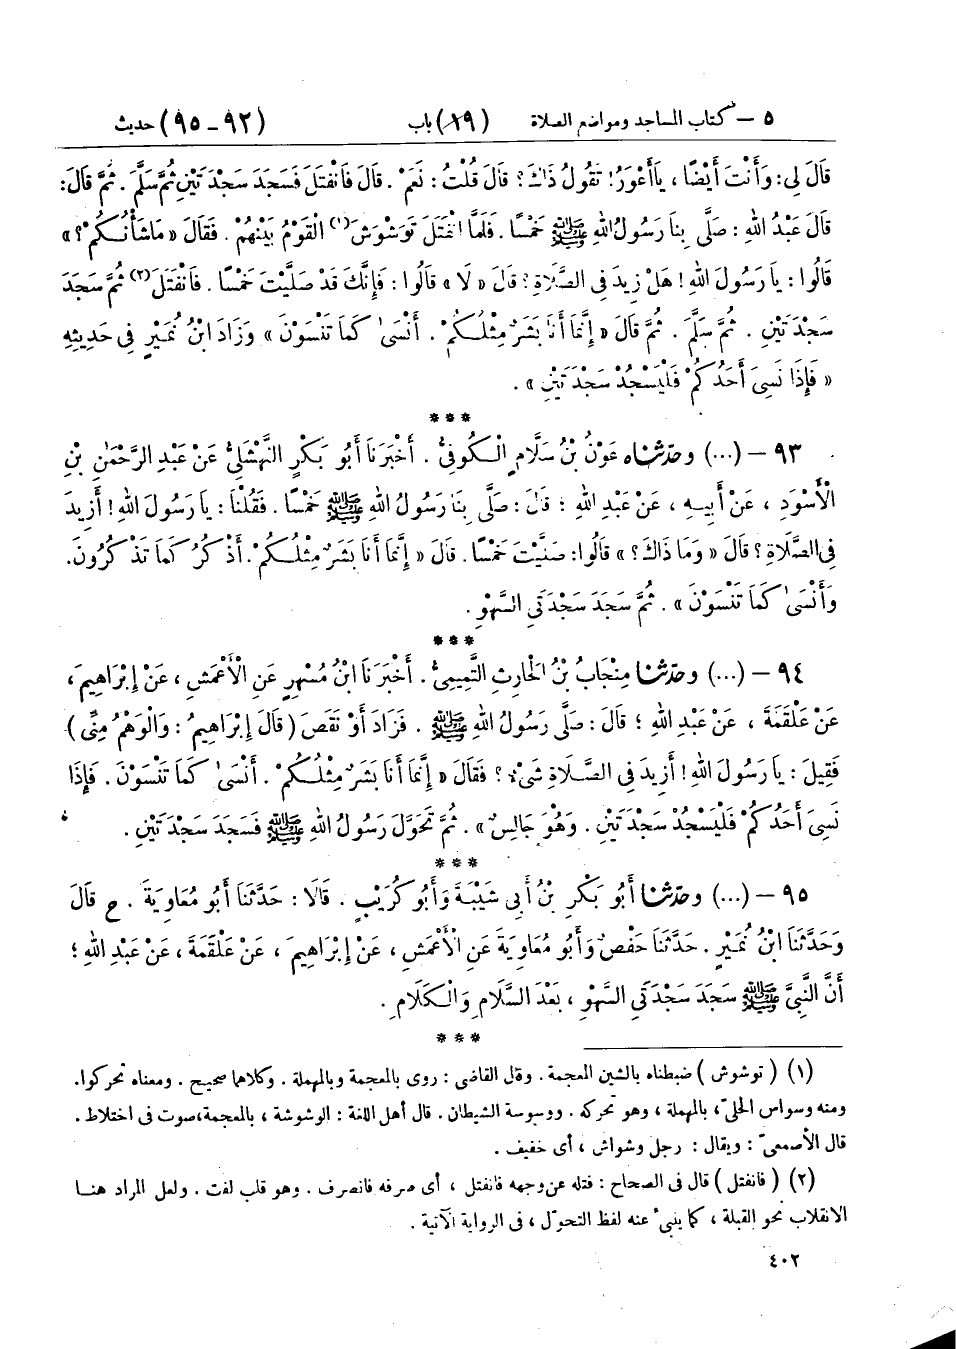 ٥ – كتاب المساجد ومواضع الصلاة (١٩) باب (٩٢-٩٥) حديث
قَالَ لِي: وَأَنْتَ أَيْضًا ، يَا أَعْوَرُ! تَقُولُ ذَاكَ؟ قَالَ قُلْتُ: نَعَمْ. قَالَ فَانْفَتَلَ فَسَجَدَ سَجْدَتَيْنِ ثُمَّ سَلَّمَ. ثُمَّ قَالَ:
قَالَ عَبْدُ اللهِ : صَلَّى بِنَا رَسُولُ اللهِ ﷺ خَمْسًا . فَلَمَّا انْفَتَلَ تَوَشْوَشَ(١) الْقَوْمُ بَيْنَهُمْ . فَقَالَ « مَا شَأْنُكُمْ ؟ »
قَالُوا : يَا رَسُولَ اللهِ ! هَلْ زِيدَ فِي الصَّلَاةِ ؟ قَالَ « لَا » قَالُوا : فَإِنَّكَ قَدْ صَلَّيْتَ خَمْسًا . فَانْفَتَلَ(٢) ثُمَّ سَجَدَ
سَجْدَتَيْنِ . ثُمَّ سَلَّمَ . ثُمَّ قَالَ « إِنَّمَا أَنَا بَشَرٌ مِثْلُكُمْ . أَنْسَىٰ كَمَا تَنْسَوْنَ » وَزَادَ ابْنُ نُمَيْرٍ فِي حَدِيثِهِ
« فَإِذَا نَسِيَ أَحَدُكُمْ فَلْيَسْجُدْ سَجْدَتَيْنِ » .
***
٩٣ – (...) وحَدَّثَنَاه عَوْنُ بْنُ سَلَّامٍ الْكُوفِيُّ . أَخْبَرَنَا أَبُو بَكْرٍ النَّهْشَلِيُّ عَنْ عَبْدِ الرَّحْمَٰنِ بْنِ
الْأَسْوَدِ ، عَنْ أَبِيهِ ، عَنْ عَبْدِ اللهِ ؛ قَالَ : صَلَّى بِنَا رَسُولُ اللهِ ﷺ خَمْسًا . فَقُلْنَا : يَا رَسُولَ اللهِ ! أَزِيدَ
فِي الصَّلَاةِ ؟ قَالَ « وَمَا ذَاكَ؟ » قَالُوا : صَلَّيْتَ خَمْسًا . قَالَ « إِنَّمَا أَنَا بَشَرٌ مِثْلُكُمْ. أَذْكُرُ كَمَا تَذْكُرُونَ.
وَأَنْسَىٰ كَمَا تَنْسَوْنَ » . ثُمَّ سَجَدَ سَجْدَتَيِ السَّهْوِ .
***
٩٤ – (...) وحَدَّثَنَا مِنْجَابُ بْنُ الْحَارِثِ التَّمِيمِيُّ . أَخْبَرَنَا ابْنُ مُسْهِرٍ عَنِ الْأَعْمَشِ ، عَنْ إِبْرَاهِيمَ ،
عَنْ عَلْقَمَةَ ، عَنْ عَبْدِ اللهِ ؛ قَالَ : صَلَّى رَسُولُ اللهِ ﷺ . فَزَادَ أَوْ نَقَصَ ( قَالَ إِبْرَاهِيمُ : وَالْوَهْمُ مِنِّي )
فَقِيلَ : يَا رَسُولَ اللهِ ! أَزِيدَ فِي الصَّلَاةِ شَيْءٌ ؟ فَقَالَ « إِنَّمَا أَنَا بَشَرٌ مِثْلُكُمْ . أَنْسَىٰ كَمَا تَنْسَوْنَ . فَإِذَا
نَسِيَ أَحَدُكُمْ فَلْيَسْجُدْ سَجْدَتَيْنِ . وَهُوَ جَالِسٌ » . ثُمَّ تَحَوَّلَ رَسُولُ اللهِ ﷺ فَسَجَدَ سَجْدَتَيْنِ .
***
٩٥ – (...) وحَدَّثَنَا أَبُو بَكْرِ بْنُ أَبِي شَيْبَةَ وَأَبُو كُرَيْبٍ . قَالَا : حَدَّثَنَا أَبُو مُعَاوِيَةَ . ح قَالَ
وَحَدَّثَنَا ابْنُ نُمَيْرٍ . حَدَّثَنَا حَفْصٌ وَأَبُو مُعَاوِيَةَ عَنِ الْأَعْمَشِ ، عَنْ إِبْرَاهِيمَ ، عَنْ عَلْقَمَةَ ، عَنْ عَبْدِ اللهِ ؛
أَنَّ النَّبِيَّ ﷺ سَجَدَ سَجْدَتَيِ السَّهْوِ ، بَعْدَ السَّلَامِ وَالْكَلَامِ .
***
(١) ( توشوش ) ضبطناه بالشين المعجمة . وقال القاضى : روى بالمعجمة وبالمهملة . وكلاهما صحيح . ومعناه تحركوا.
ومنه وسواس الحلىّ، بالمهملة ، وهو تحركه . ووسوسة الشيطان . قال أهل اللغة : الوشوشة ، بالمعجمة، صوت فى اختلاط .
قال الأصمعىّ : ويقال : رجل وشواش ، أى خفيف .
(٢) ( فانفتل ) قال فى الصحاح : فتله عن وجهه فانفتل ، أى صرفه فانصرف . وهو قلب لفت . ولعل المراد هنا
الانقلاب نحو القبلة ، كما ينبىء عنه لفظ التحوّل ، فى الرواية الآتية .
٤٠٢